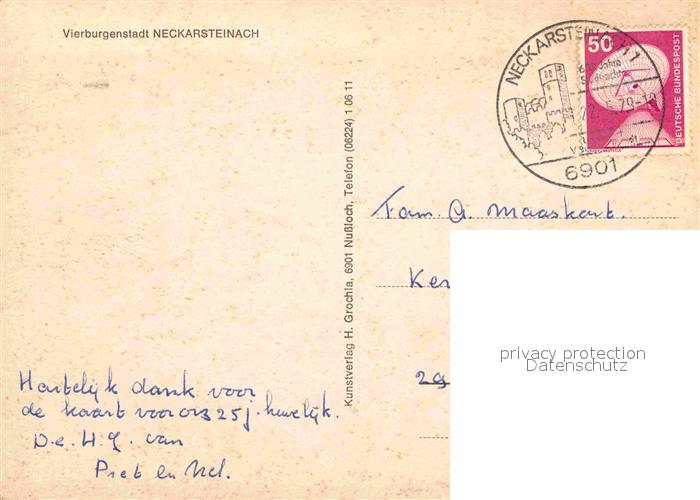 Vierburgenstadt NECKARSTEINACH
NECKARSTEINACH 1
6901
50
DEUTSCHE BUNDESPOST
Kunstverlag H. Grochla, 6901 Nußloch, Telefon (06224) 1 06 11
Fam. A. Maaskant.
Ke
29
privacy protection
Datenschutz
Hartelijk dank voor
de kaart voor ons 25 j. huwelijk.
D.e. H.G. van
Piet en Nel.